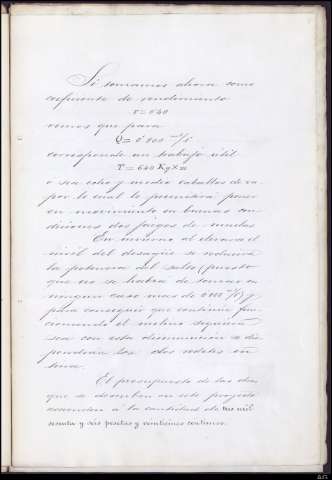 Si tomamos ahora como
coeficiente de rendimiento
r = 0'40
vemos que para
Q = 0'800 m³/1"
corresponde un trabajo útil
T = 640 Kg × m
o sea ocho y medio caballos de va-
por lo cual le permitirá poner
en movimiento en buenas con-
diciones dos juegos de muelas
En invierno al elevarse el
nivel del desagüe se reducirá
la potencia del salto (puesto
que no se habrá de tomar en
ninguno caso mas de
para conseguir que continúe fun-
cionando el molino siquiera
sea con esta disminucion se dis-
pondrán los dos rodetes en
El presupuesto de las obras
que se describen en este proyecto
asciende á la cantidad de tres mil
sesenta y seis pesetas y veinticinco centimos.